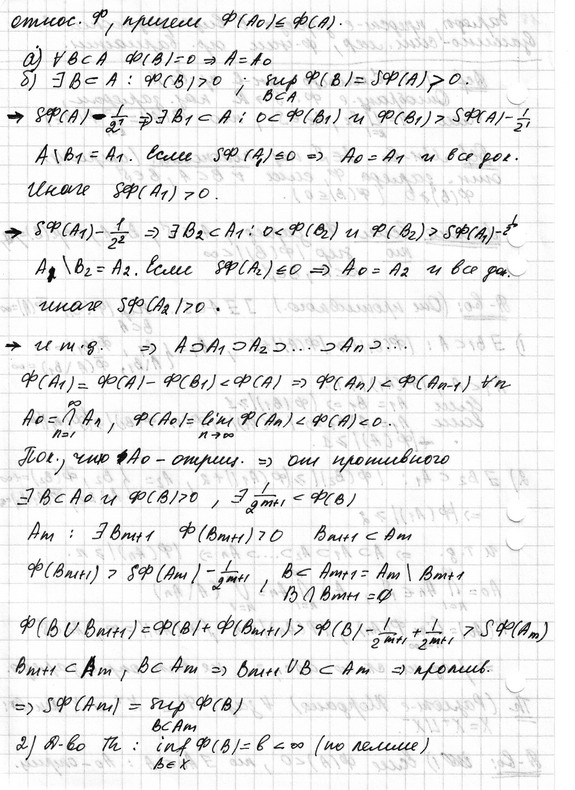 относ. Φ, причем Φ(A₀) ≤ Φ(A).
а) ∀B⊂A Φ(B)=0 ⇒ A=A₀
б) ∃B⊂A : Φ(B)>0 ; sup_{B⊂A} Φ(B) = SΦ(A) > 0.
→ SΦ(A) - 1/2¹ ⇒ ∃B₁⊂A : 0<Φ(B₁) и Φ(B₁) > SΦ(A) - 1/2¹
A\B₁ = A₁. Если SΦ(A₁) ≤ 0 ⇒ A₀ = A₁ и все док.
Иначе SΦ(A₁) > 0.
→ SΦ(A₁) - 1/2² ⇒ ∃B₂⊂A₁ : 0<Φ(B₂) и Φ(B₂) > SΦ(A₁) - 1/2²
A₁\B₂ = A₂. Если SΦ(A₂) ≤ 0 ⇒ A₀ = A₂ и все док.
иначе SΦ(A₂) > 0.
→ и т.д. ⇒ A⊃A₁⊃A₂⊃...⊃Aₙ⊃...
Φ(A₁) = Φ(A) - Φ(B₁) < Φ(A) ⇒ Φ(Aₙ) < Φ(Aₙ₋₁) ∀n
A₀ = ⋂_{n=1}^{∞} Aₙ, Φ(A₀) = lim_{n→∞} Φ(Aₙ) < Φ(A) < 0.
Пок., что A₀ - отриц. ⇒ от противного
∃B⊂A₀ и Φ(B)>0, ∃ 1/2^{m+1} < Φ(B)
Aₘ : ∃Bₘ₊₁ Φ(Bₘ₊₁)>0 Bₘ₊₁⊂Aₘ
Φ(Bₘ₊₁) > SΦ(Aₘ) - 1/2^{m+1}, B⊂Aₘ₊₁ = Aₘ\Bₘ₊₁
B⋂Bₘ₊₁ = ∅
Φ(B∪Bₘ₊₁) = Φ(B) + Φ(Bₘ₊₁) > Φ(B) - 1/2^{m+1} + 1/2^{m+1} > SΦ(Aₘ)
Bₘ₊₁⊂Aₘ, B⊂Aₘ ⇒ Bₘ₊₁∪B⊂Aₘ ⇒ против.
⇒ SΦ(Aₘ) = sup_{B⊂Aₘ} Φ(B)
2) Д-во Th : inf_{B∈X} Φ(B) = b < ∞ (по лемме)